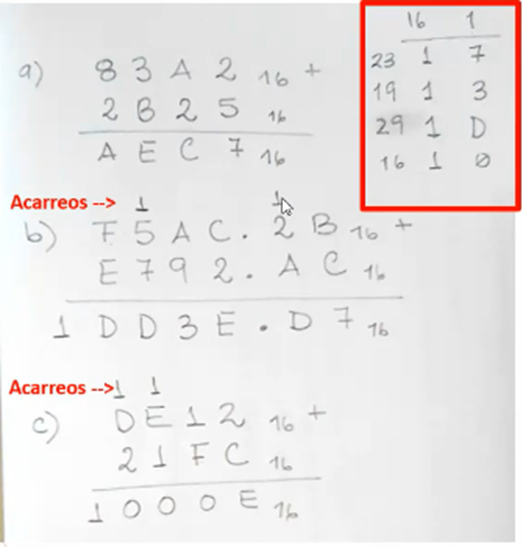 a) 8 3 A 2 16 +
2 B 2 5 16
A E C 7 16
16 1
23 1 7
19 1 3
29 1 D
16 1 0
Acarreos --> 1 1
b) F 5 A C . 2 B 16 +
E 7 9 2 . A C 16
1 D D 3 E . D 7 16
Acarreos --> 1 1
c) D E 1 2 16 +
2 1 F C 16
1 0 0 0 E 16